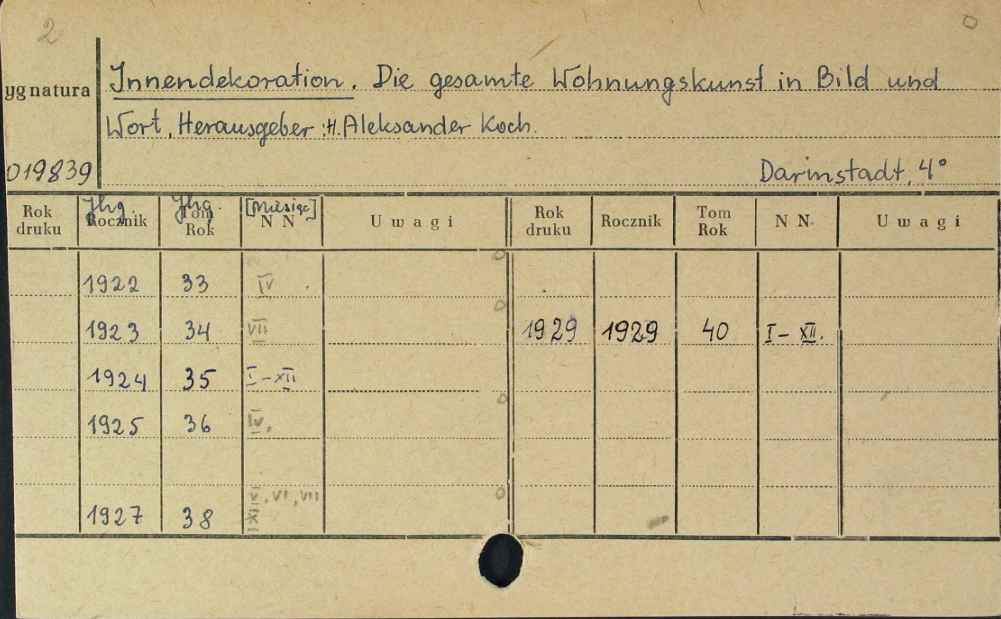 2
ygnatura Innendekoration. Die gesamte Wohnungskunst in Bild und
Wort, Herausgeber :H. Aleksander Koch.
019839 Darinstadt, 4°
Jhg Jhg. [Miesiąc]
Rok druku Rocznik Tom Rok N N Uwagi Rok druku Rocznik Tom Rok N N. Uwagi
1922 33 IV
1923 34 VII 1929 1929 40 I - XII.
1924 35 I - XII
1925 36 IV,
V, VI, VII
1927 38 XI